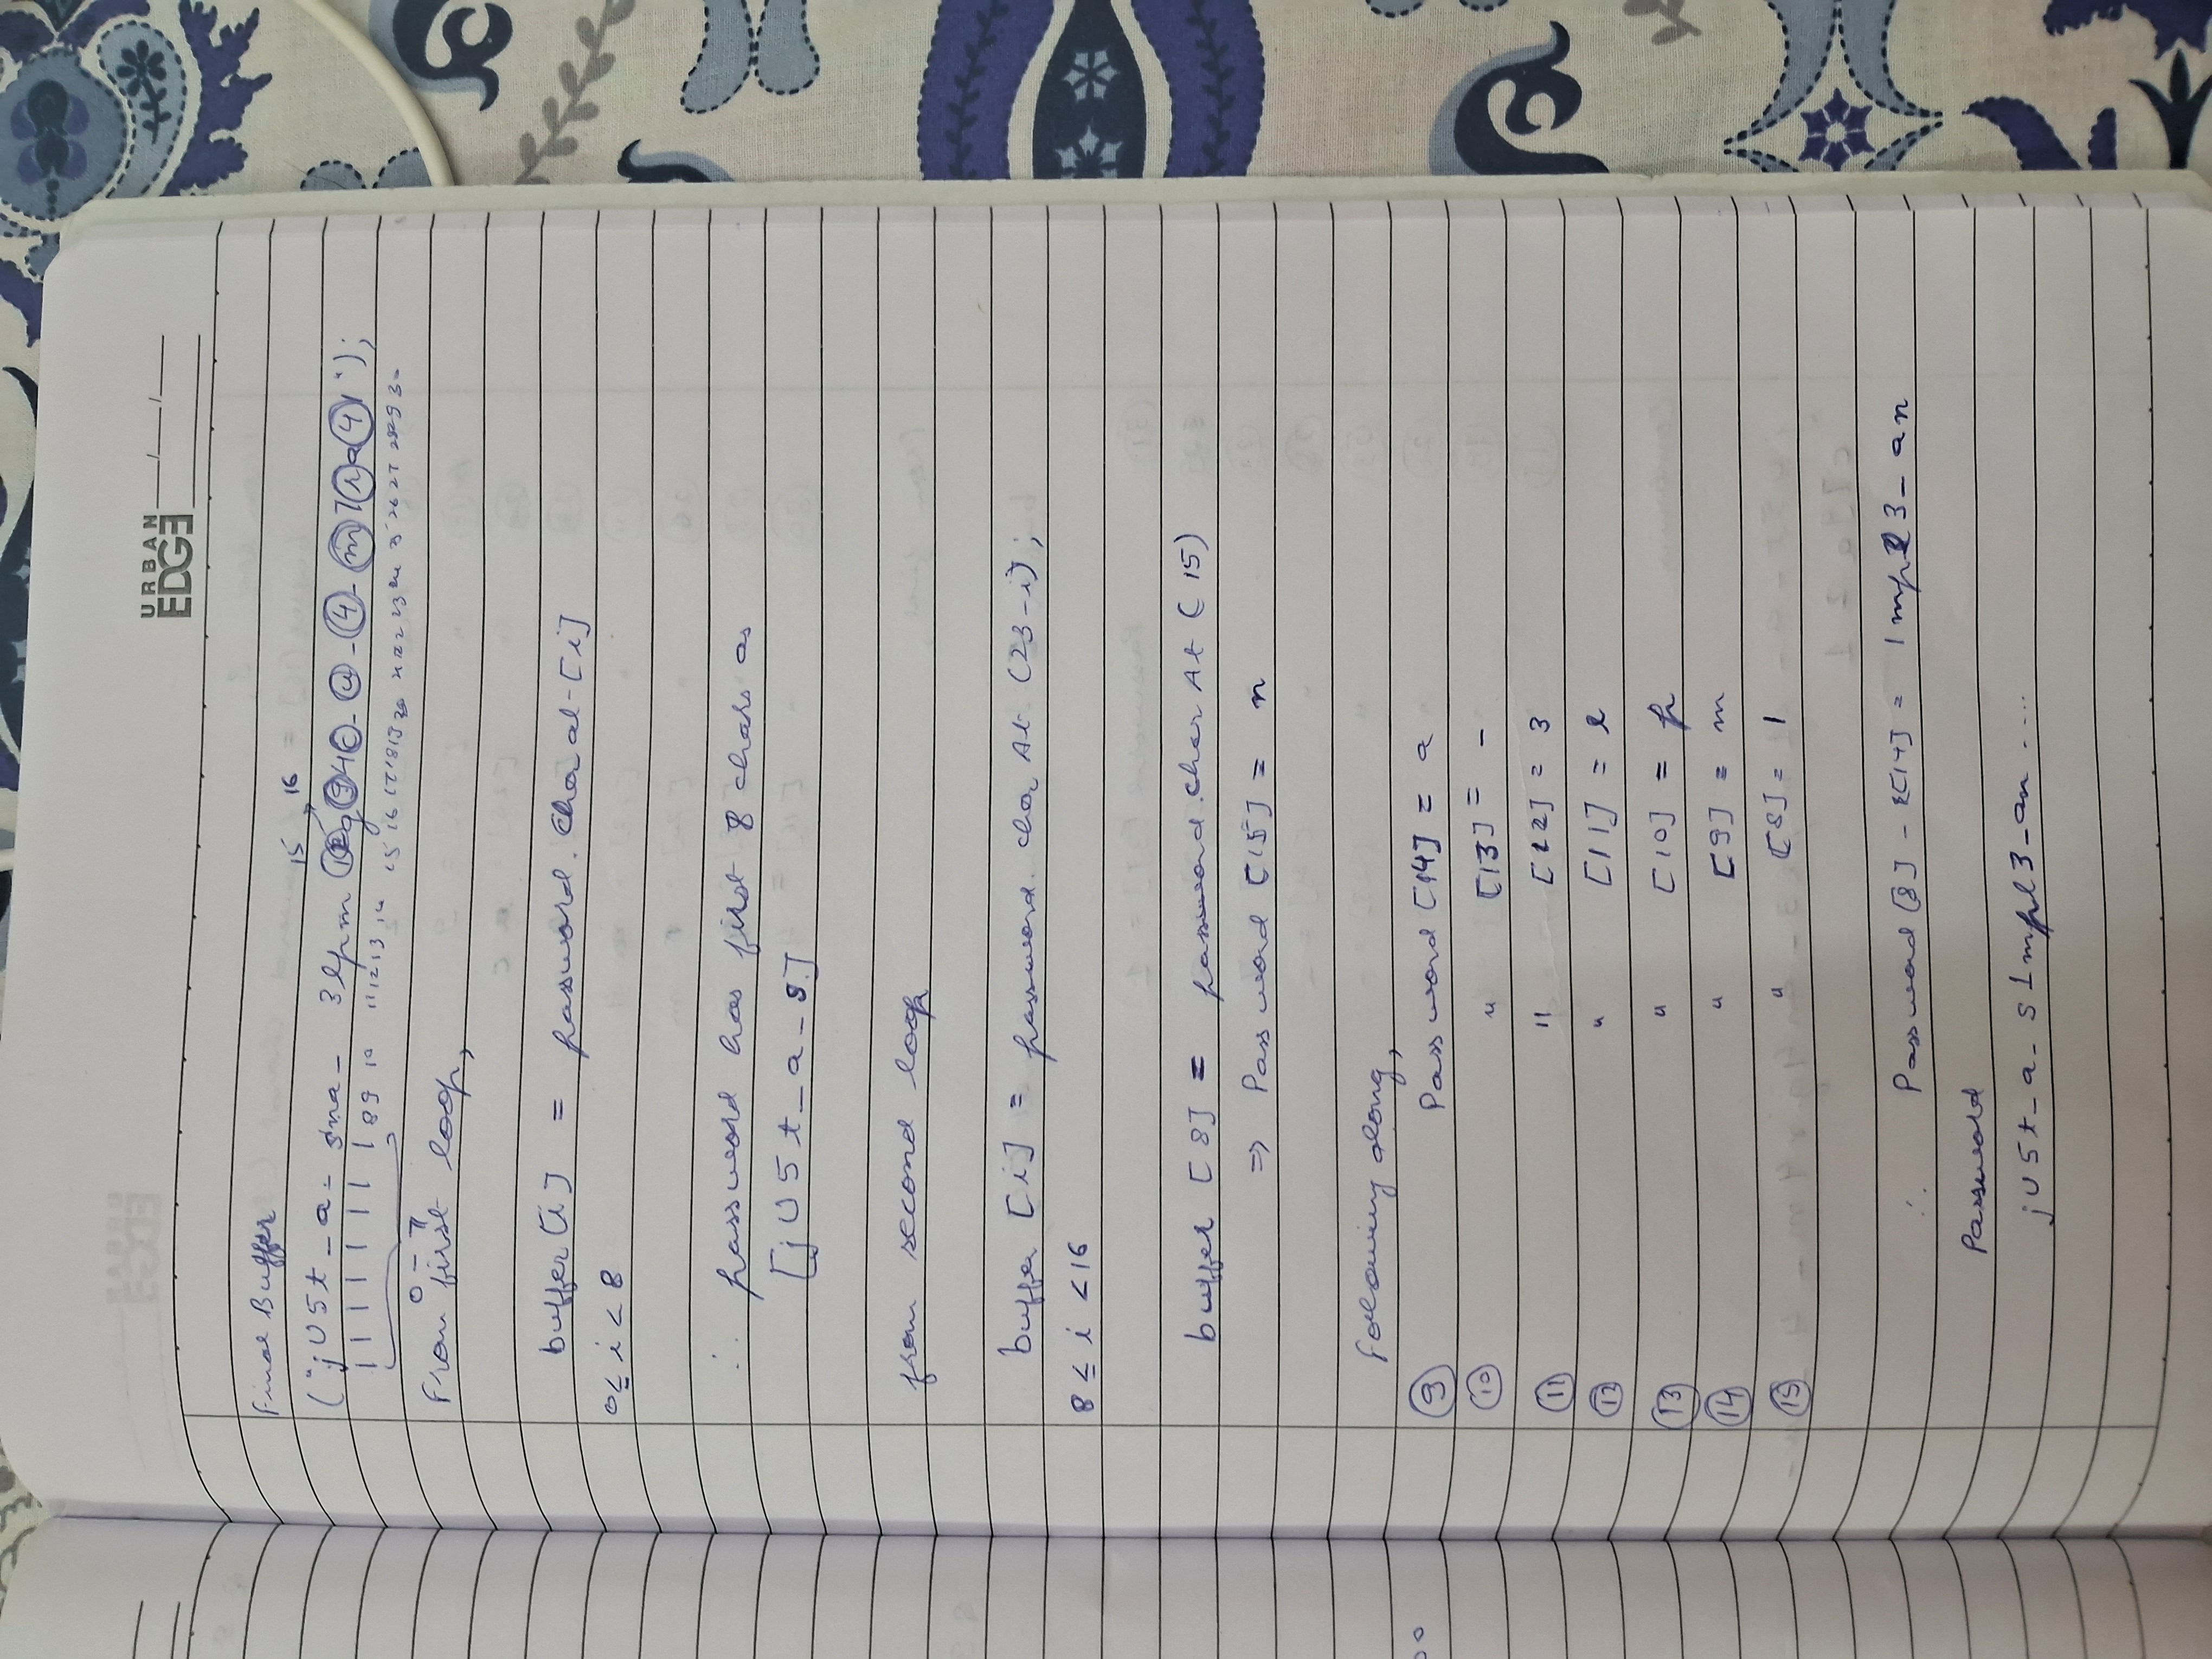 URBAN
EDGE
Final Buffer
15 16
("jU5t_a_ sna_ 3lpm 12g94c_u_4_m7ra41");
8 9 10 11 12 13 14 15 16 17 18 19 20 21 22 23 24 25 26 27 28 29 30
0-7
From first loop,
buffer[i] = password.charat[i]
0≤ i < 8
∴ password has first 8 chars as
[jU5t_a_s]
from second loop
buffer [i] = password. char At (23-i);
8 ≤ i <16
buffer [8] = password.char At (15)
⇒ Password [15] = n
Following along,
9 Password [14] = a
10 " [13] = -
11 " [12] = 3
12 " [11] = l
13 " [10] = p
14 " [9] = m
15 " [8] = 1
∴ Password [8] - [14] = 1mpl3_an
Password
jU5t_a_s1mpl3_an ....